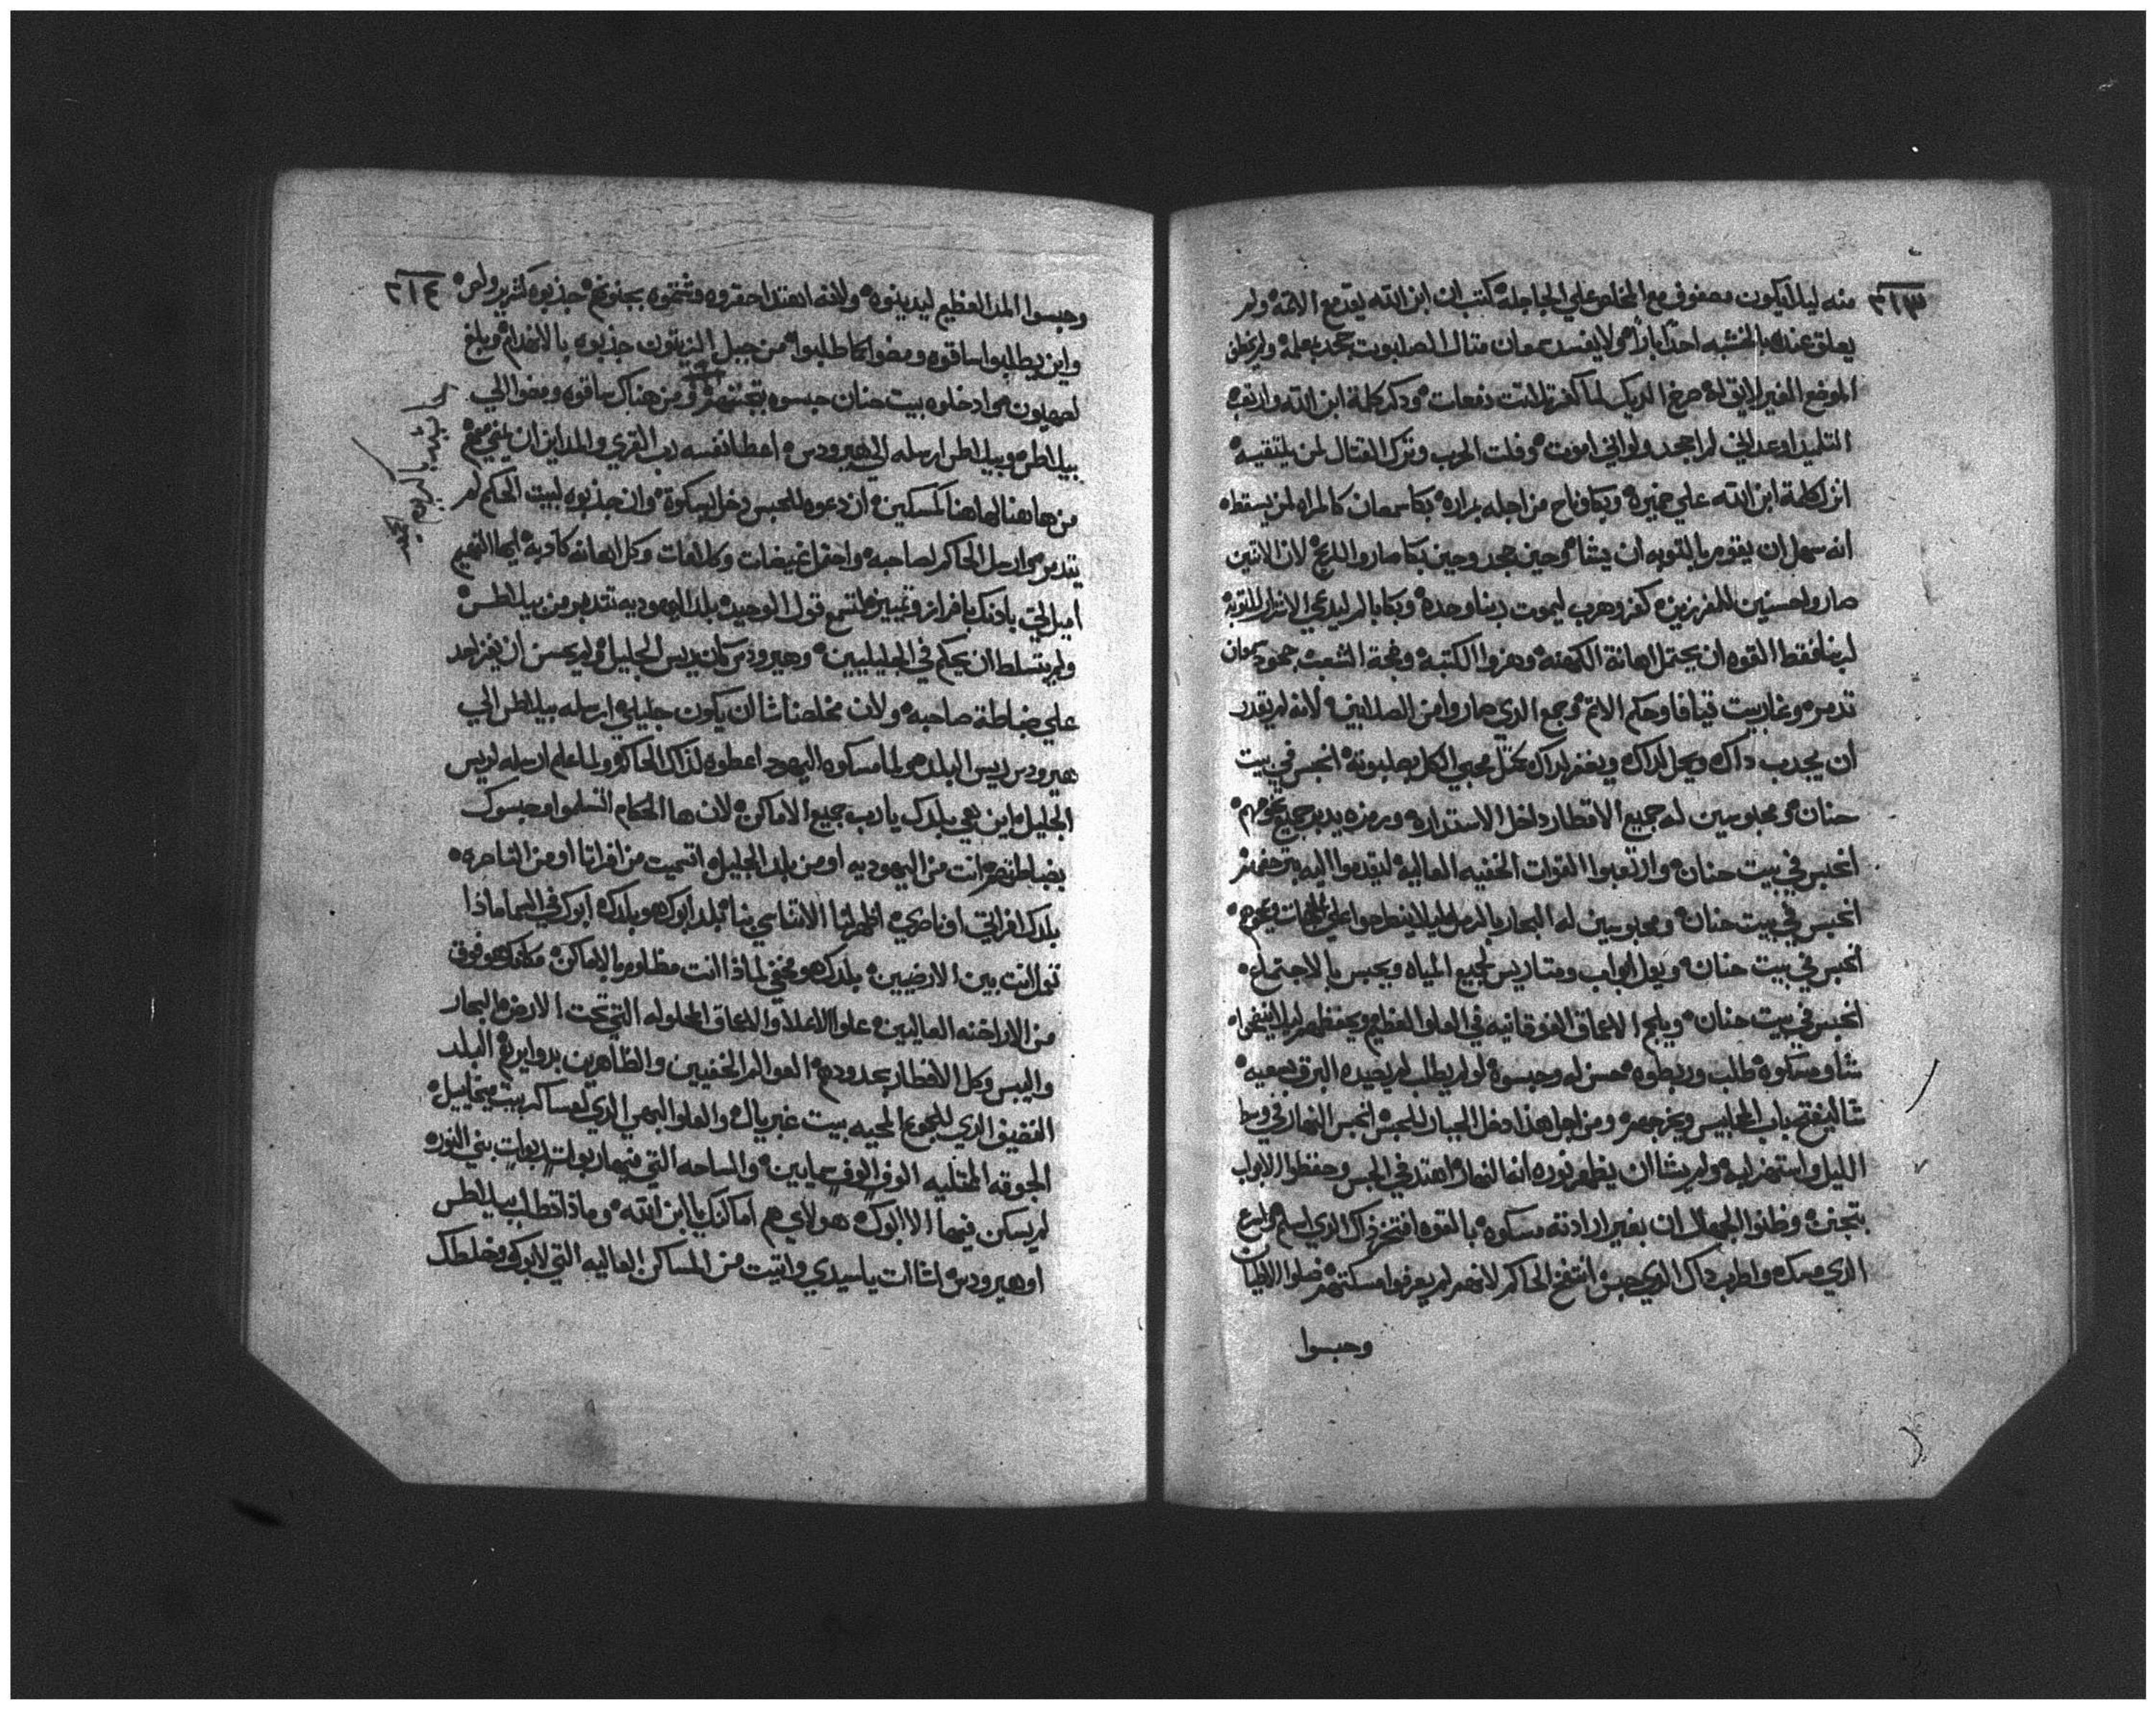 ٣١٣
منه ليلا يكون مصفوف مع المخلص علي الجاجلة كتب ان ابن الله يقدم مع الاتمه ولم
يعلق عنده بالخشبه احدا بارا ولا يفسد سمعان مثال الصلبوت جحد بعلمة ولم يخطي
الموضع الغير لايق له صرخ الديك لما كفر تلات دفعات ودكر كلمة ابن الله وارتعب
التلميد اوعد اني لم اجحد ولو اني اموت وفلت الحرب وترك القتال لمن يلتقيه
اتر كلمة ابن الله علي ضميرة وبكا وناح من اجله بمراره بكا سمعان كالمراه لمن يسقطاه
انه سهل ان يقوم بالتوبه ان يشا وحين جحد وحين بكا صار والبديع لان الاتنين
صاروا حسنين للمفرزين كفر وهرب ليموت ربنا وحده وبكا بالم ليدعي الاشرار للتوبة
لربنا فقط القوه ان يحتمل اهانة الكهنه وهزوا الكتبه وضجة الشعب جحود سمعان
تدمر وغار بيت قيافا وحكم الاتم وجمع الدي صاروا من الصلابين لانه لم يقدر
ان يجدب داك ويحل لداك ويغفر لداك بحمل محيي الكل بصلبوته انحبس في بيت
حنان ومحبوسين له جميع الاقطار داخل الاستداره وبرمزه يدبر جميع تخومهم
انحبس في بيت حنان وارتعبوا القوات الخفيه العاليه ليتقدموا اليه بترجفهم
انحبس في بيت حنان ومحبوسين له البحار بالرمل ليلا ينطردوا علي الجهات وتخومهم
انحبس في بيت حنان ويول ابواب ومتاريس لجميع المياه ويحبس بالاجتماع
انحبس في بيت حنان ويلجم الاعماق الفوقانيه في العلو العظيم ويحفظهم ليلا ينفجرا
شا ومسكوه طلب وربطوه حسن له وحبسوه لو لم يطلب لم يصيده البرق بسعيه
شا ليفتح باب المحابيس ويخرجهم ومن اجل هذا دخل الجبار للحبس انحبس النهار في وسط
الليل واستهزا به ولم يشا ان يظهر نوره انما النهار اهتد في الحبس وحفظوا الابواب
بتجنن وظنوا الجهال ان بغير ارادته مسكوه بالقوه افتخر داك الدي اسلم وفرح
الدي مسك واطرب داك الدي حبس انتفخ الحاكم لانهم لم يعرفوا مسكنهم ضلوا الاطيان
وحبسوا
٣١٤
وحبسوا المد العظيم ليدينوه ولانه اهتدا حقروه وشتموه بجنونهم جذبوه كشرير ولص
واين يطلبوا ساقوه ومضوا كما طلبوا من جبل الزيتون جذبوه بالانهدام وبلغ
لصهيون وادخلوه بيت حنان حبسوه بتجننهم ومن هناك ساقوه ومضوا الي
بيلاطس وبيلاطس ارسله الي هيرودس اعطا نفسه رب القري والمداين ان يمشي معهم
من هاهنا لهاهنا كمسكين ان دعوه للحبس دخل بسكوة وان جذبوه لبيت الحكم لم
يتدمر وارسل الحاكم لصاحبه واحتمل غيضات وكلامات وكل اهانه كادبة ايها الفهيم
اميل لي بادنك بافراز وتمييز لتسمع قول الوحيد بلد اليهوديه تتدبر من بيلاطس
ولم يتسلط ان يحكم في الجليليين وهيرودس كان ريس الجليل ولم يحسن ان يغز احد
علي ضباطة صاحبه ولان مخلصنا شا ان يكون جليلي ارسله بيلاطس الي
هيرودس ريس البلد ولما مسكوه اليهود اعطوه لذاك الحاكم ولما علم ارسله لريس
الجليل اين هي بلدك يا رب جميع الاماكن لان ها الحكام التسلموا وحبسوك
بضباطتهم انت من اليهوديه او من بلد الجليل اتسميت من افراتا او من الناصره
بلدك افراتي او ناصري اظهر لنا الاتناسي بنا بلد ابوك هو بلدك ابوك في السما ماذا
تنزل انت بين الارضيين بلدك هو مخفي لماذا انت مظلوم بالاماكن مكانك هو فوق
من الاراخنه العاليين علو الاعلا والاعماق المحلوله التي تحت الارض والبحار
واليبس وكل الاقطار بحدودهم العوالم الخفيين والظاهرين بدوايرهم البلد
الفضيق الدي للجموع المحيه بيت غبريال والعلو البهي الدي لعساكر بيت ميخاييل
الجوقه المتليه الوف الوف سمايين والساحه التي فيها ربوات ربوات بني النوره
لم يسكن فيها الا ابوك هولاي هم اماكنك يا ابن الله وماذا تطلب بيلاطس
او هيرودس اشا انت يا سيدي واتيت من المساكن العاليه التي لابوك وخلطك